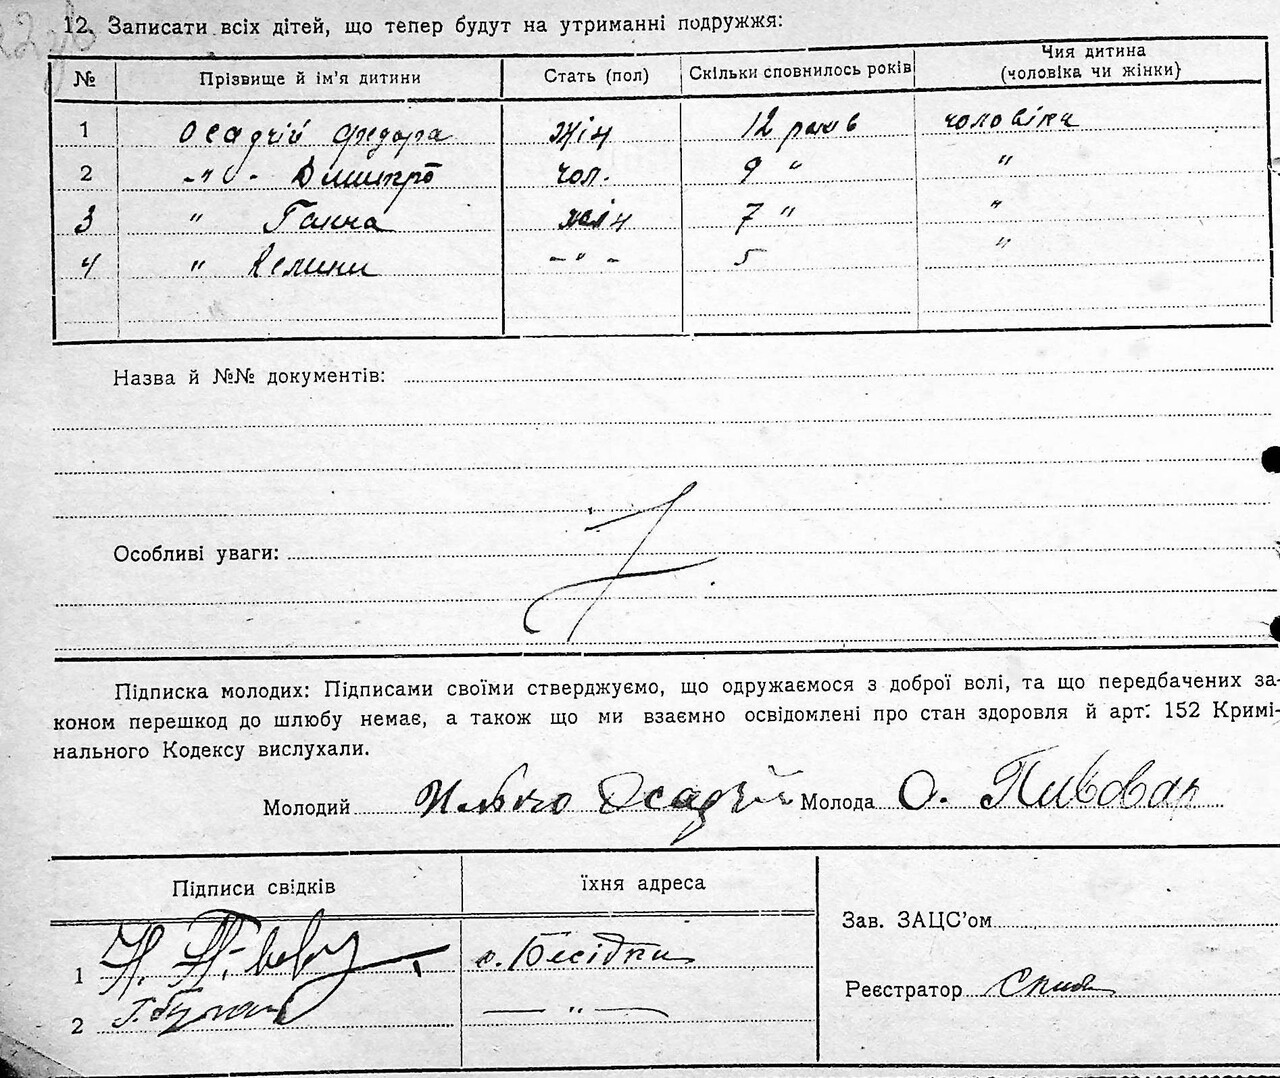 12. Записати всіх дітей, що тепер будут на утриманні подружжя:
№ Прізвище й ім'я дитини Стать (пол) Скільки сповнилось років Чия дитина (чоловіка чи жінки)
1 Осадчій Федора жін 12 років чоловіка
2 -"- Димитро чол. 9 " "
3 " Ганна жін 7 " "
4 " -"- 5 "
Назва й №№ документів:
Особливі уваги:
Підписка молодих: Підписами своїми стверджуємо, що одружаємося з доброї волі, та що передбачених за-
коном перешкод до шлюбу немає, а також що ми взаємно освідомлені про стан здоровля й арт. 152 Кримі-
нального Кодексу вислухали.
Молодий Илько Осадчій Молода О. Пивовар
Підписи свідків їхня адреса
Зав. ЗАЦС'ом
1 с. Бесідки
Реєстратор
2 — " —